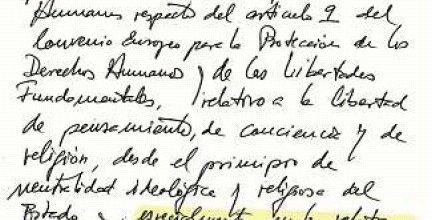 Humanos respecto del artículo 9 del
Convenio Europeo para la Protección de los
Derechos Humanos y de las Libertades
Fundamentales, relativo a la libertad
de pensamiento, de conciencia y de
religión, desde el principio de
neutralidad ideológica y religiosa del
Estado y, especialmente en lo